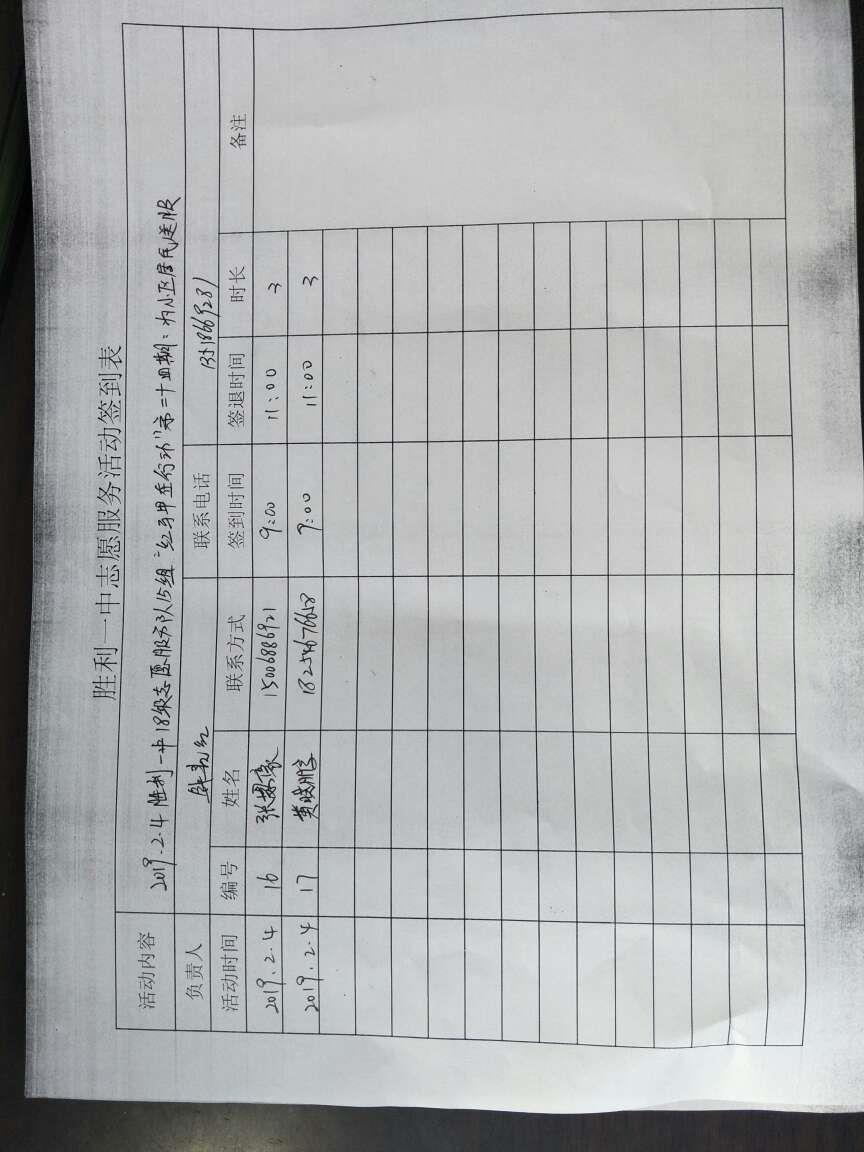 胜利一中志愿服务活动签到表
活动内容 2019.2.4 胜利一中18级志愿服务队15组“红马甲在行动”第二十四期：为小区居民送服
负责人 联系电话 13518669281
活动时间 编号 姓名 联系方式 签到时间 签退时间 时长 备注
2019.2.4 16 张 15006886921 9:00 11:00 3
2019.2.4 17 黄晓鹏 18254676658 9:00 11:00 3